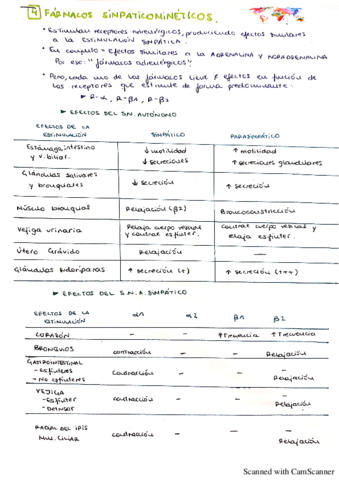 4 FÁRMACOS SIMPATICOMINÉTICOS.
• Estimulan receptores noradrenérgicos, produciendo efectos similares
a la ESTIMULACIÓN SIMPÁTICA.
• En conjunto → Efectos similares a la ADRENALINA y NORADRENALINA
Por eso: "fármacos adrenérgicos"
• Pero, cada uno de los fármacos tiene ≠ efectos en función de
los receptores que estimule de forma predominante:
► R-α, R-β1, R-β2
► EFECTOS DEL S.N. AUTÓNOMO
EFECTOS DE LA ESTIMULACIÓN SIMPÁTICO PARASIMPÁTICO
Estómago, intestino y v. biliar. ↓ motilidad ↓ secreciones ↑ motilidad ↑ secreciones glandulares
Glándulas salivares y bronquiales ↓ secreción ↑ secreción
Músculo bronquial Relajación (β2) Broncoconstricción
Vejiga urinaria Relaja cuerpo vesical y contrae esfínter Contrae cuerpo vesical y relaja esfínter.
Útero Grávido Relajación —
Glándulas sudoríparas ↑ secreción (+) ↑ secreción (+++)
► EFECTOS DEL S.N.A. SIMPÁTICO
EFECTOS DE LA ESTIMULACIÓN α1 α2 β1 β2
CORAZÓN – – ↑ Frecuencia ↑ Frecuencia
BRONQUIOS contracción – – Relajación
GASTROINTESTINAL
- Esfínteres Contracción – – –
- No esfínteres Relajación
VEJIGA
- Esfínter contracción – – –
- Detrusor Relajación
RADIAL DEL IRIS contracción – – –
Mus. Ciliar Relajación
Scanned with CamScanner